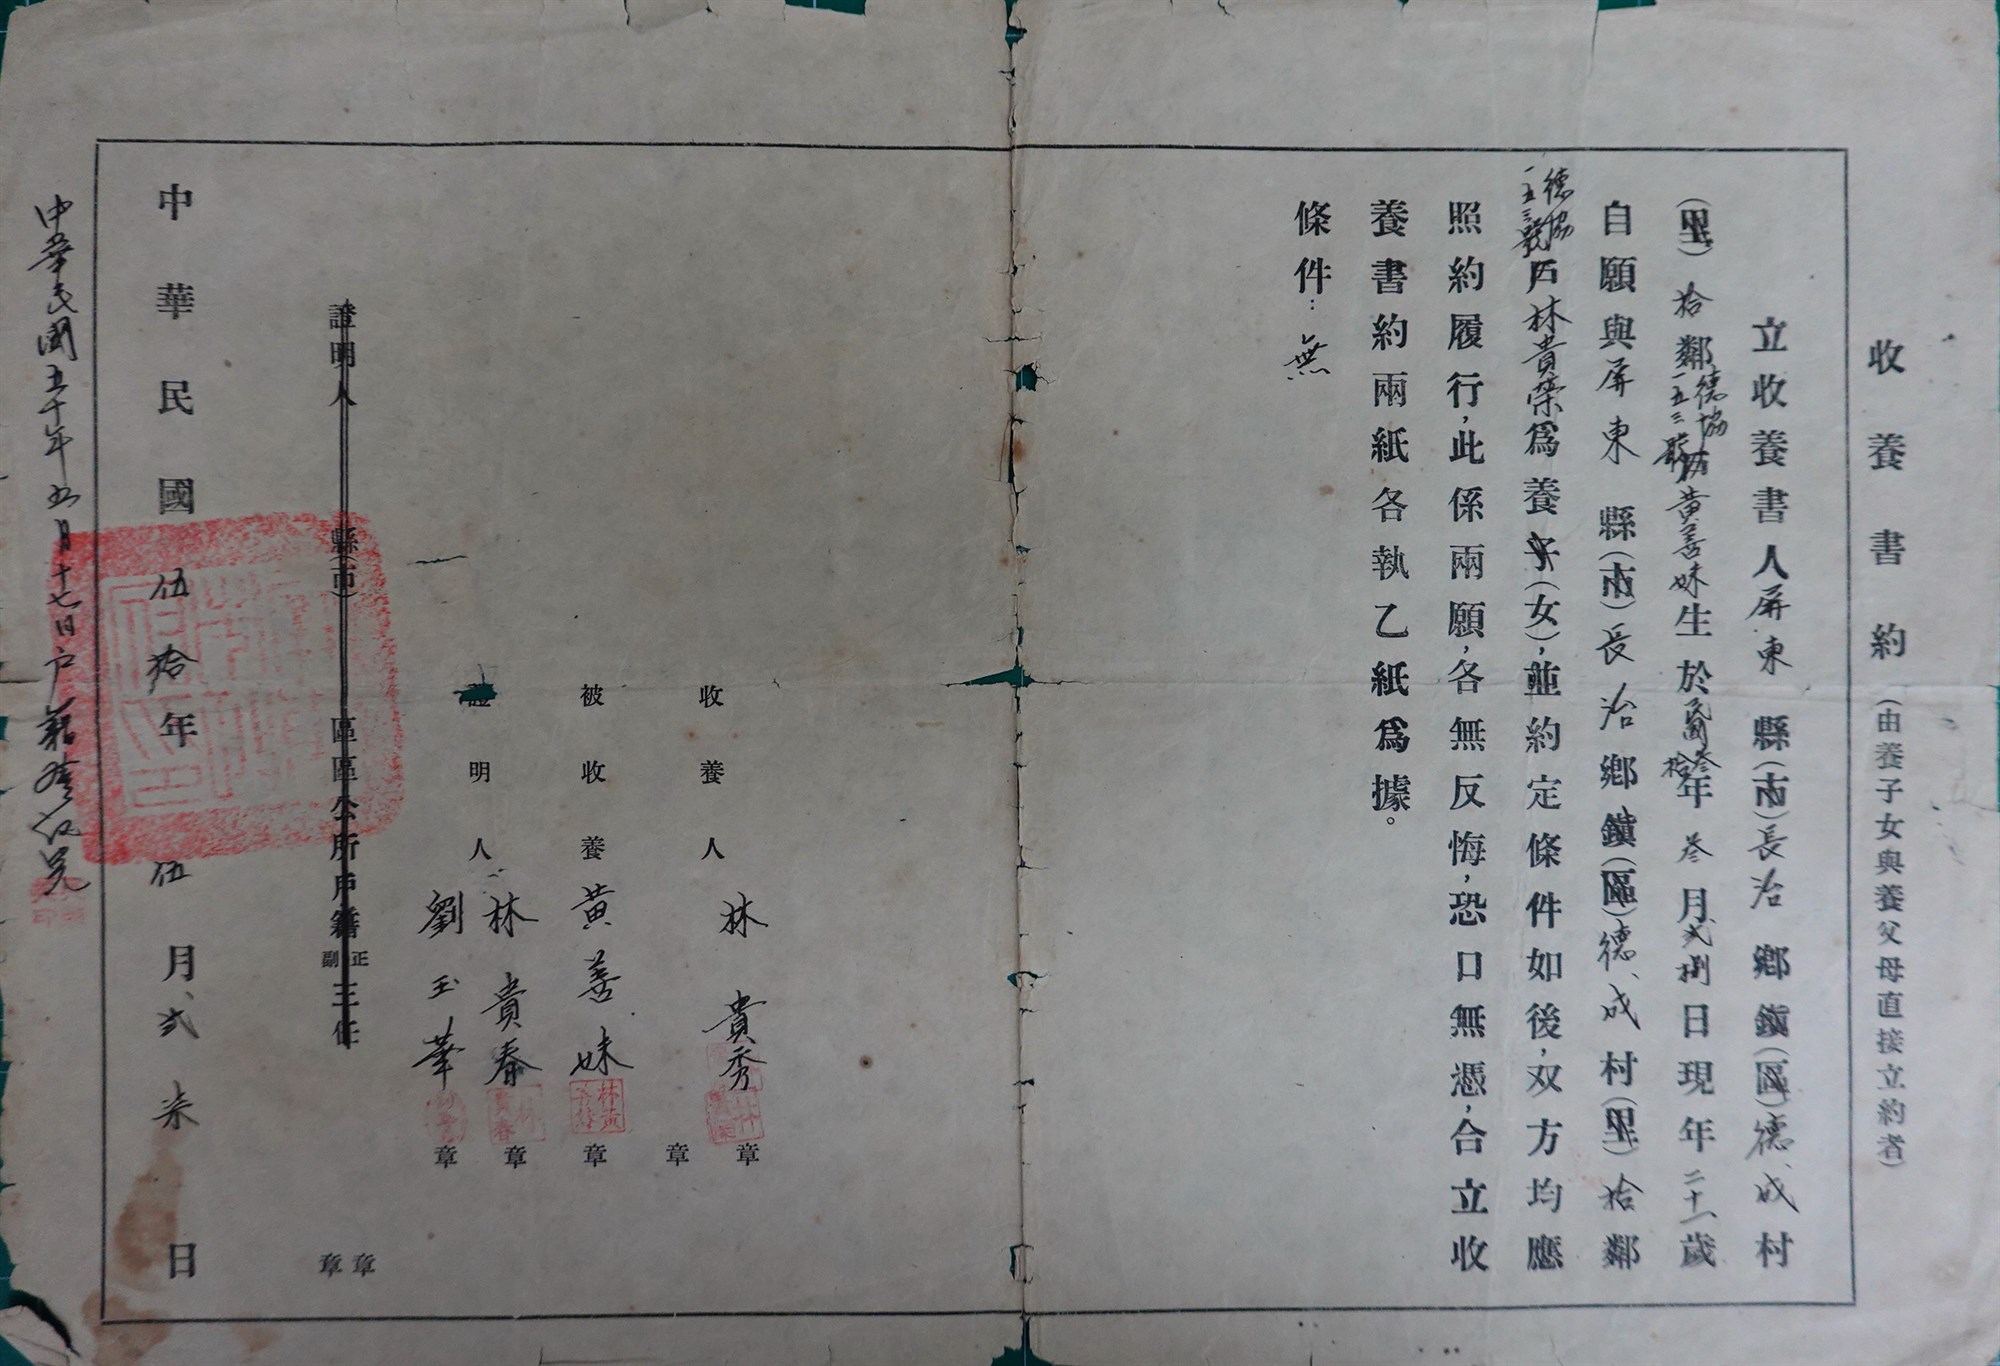 收養書約(由養子女與養父母直接立約者)
立收養書人屏東縣(市)長治鄉鎮(區)德成村
(里)拾鄰德協一五三號戶黃善妹生於民國拾叁年叁月弍捌日現年二十一歲
自願與屏東縣(市)長治鄉鎮(區)德成村(里)拾鄰
德協一五三號戶林貴榮為養子(女),並約定條件如後,双方均應
照約履行,此係兩願,各無反悔,恐口無憑,合立收
養書約兩紙各執乙紙為據。
條件:無
收養人 林貴秀 章
章
被收養人 黃善妹 章
證明人 林貴春 章
劉玉華 章
證明人 縣(市) 區區公所戶籍正副主任 章章
中華民國伍拾年伍月弍柒日
中華民國五十年五月十七日戶籍登記完